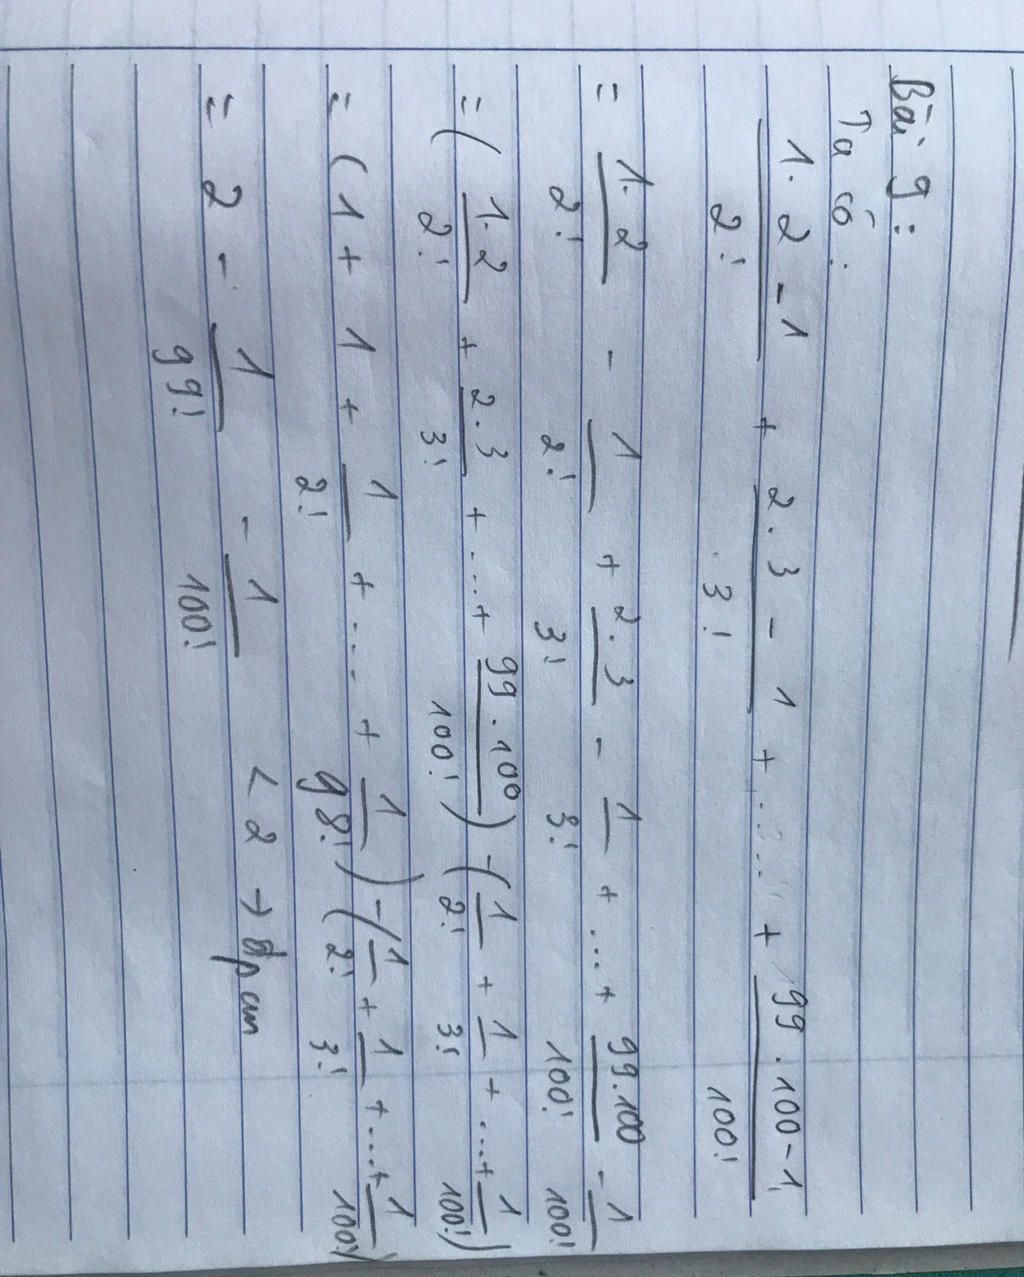 Bài 9:
Ta có:
(1.2 - 1)/2! + (2.3 - 1)/3! + ... + (99.100 - 1)/100!
= 1.2/2! - 1/2! + 2.3/3! - 1/3! + ... + 99.100/100! - 1/100!
= (1.2/2! + 2.3/3! + ... + 99.100/100!) - (1/2! + 1/3! + ... + 1/100!)
= (1 + 1 + 1/2! + ... + 1/98!) - (1/2! + 1/3! + ... + 1/100!)
= 2 - 1/99! - 1/100! < 2 → đpcm